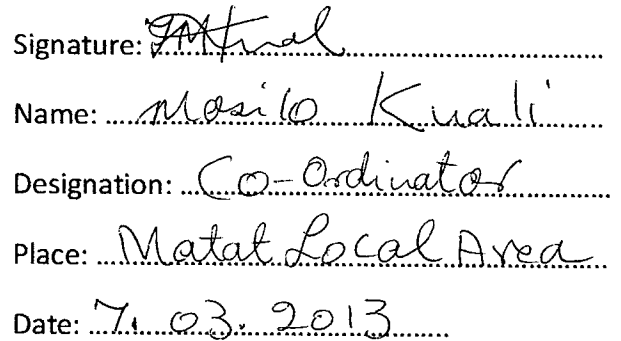 Signature:
Name: Mosilo Kuali
Designation: Co-Ordinator
Place: Matat Local Area
Date: 7. 03. 2013